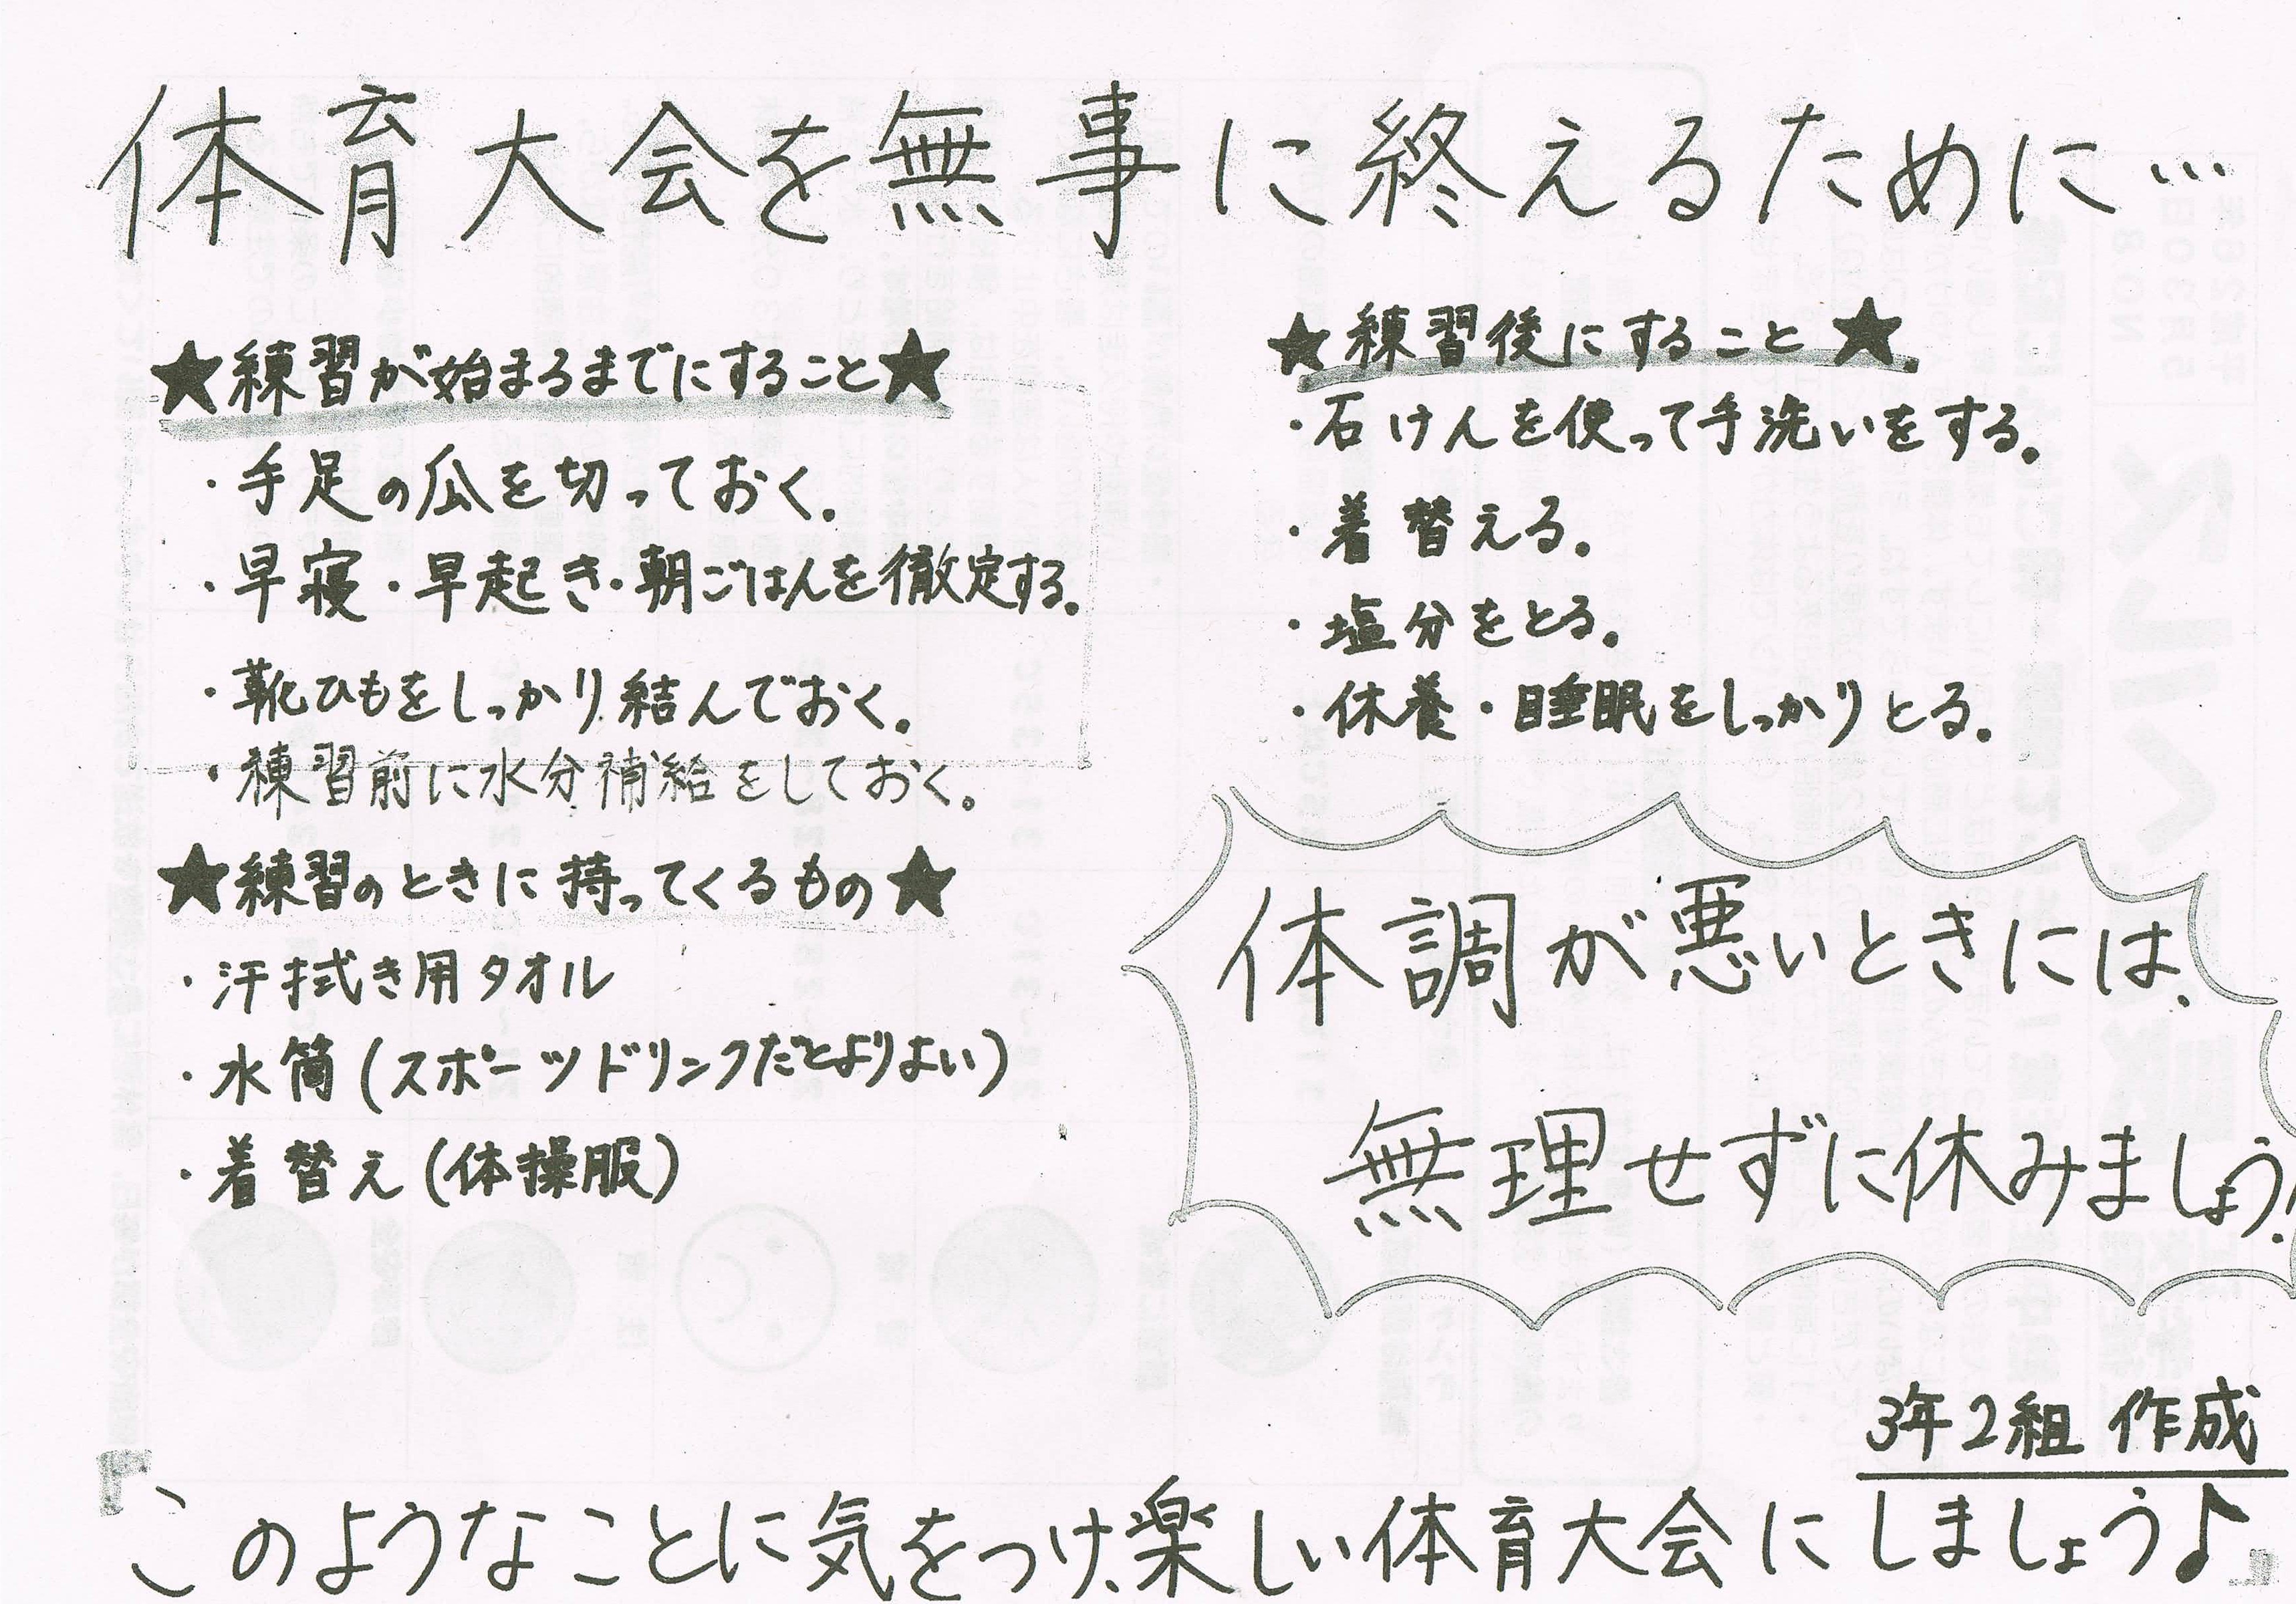 体育大会を無事に終えるために…
★練習が始まるまでにすること★
・手足の瓜を切っておく。
・早寝・早起き・朝ごはんを徹定する。
・靴ひもをしっかり結んでおく。
・練習前に水分補給をしておく。
★練習のときに持ってくるもの★
・汗拭き用タオル
・水筒(スポーツドリンクだとよりよい)
・着替え(体操服)
★練習後にすること★
・石けんを使って手洗いをする。
・着替える。
・塩分をとる。
・休養・睡眠をしっかりとる。
体調が悪いときには、
無理せずに休みましょう!
3年2組 作成
「このようなことに気をつけ、楽しい体育大会にしましょう♪」